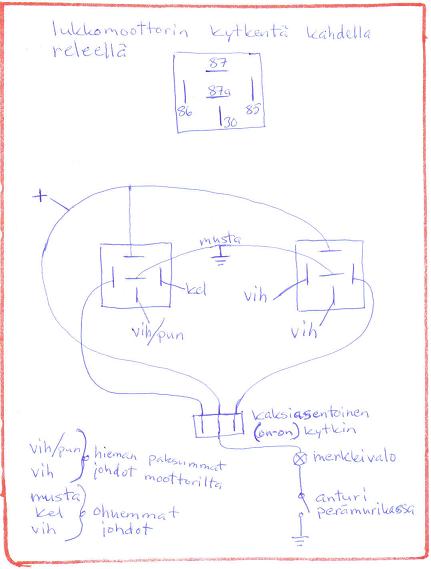 lukkomoottorin kytkentä kahdella
releellä
87
87a
86
85
30
+
musta
kel
vih
vih/pun
vih
kaksiasentoinen
(on-on) kytkin
merkkivalo
anturi
perämurikassa
vih/pun
vih
hieman paksummat
johdot moottorilta
musta
kel
vih
ohuemmat
johdot